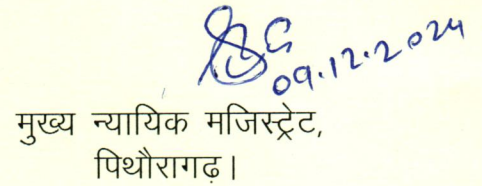 09.12.2024
मुख्य न्यायिक मजिस्ट्रेट,
पिथौरागढ़।